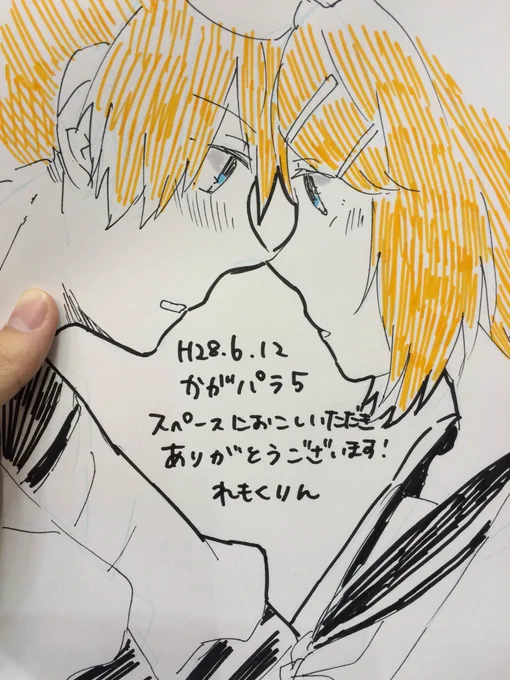 H28.6.12
かがパラ5
スペースにおこしいただき
ありがとうございます!
れもくりん